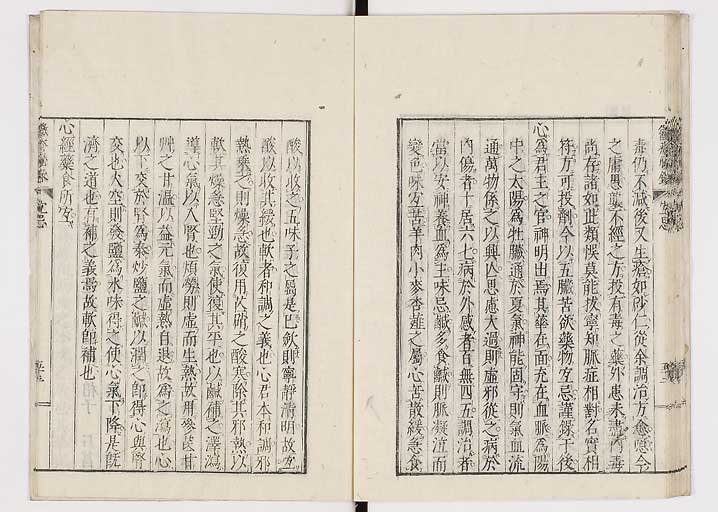 毒仍不減後又生瘡如砂仁從余調治方愈噫今
之庸愚襲不經之方投有毒之藥外患未盡內毒
尚存諸如此類悞莫能拔寧知脉症相對名實相
符方可投劑今以五臟苦欲藥物宜忌謹錄于後
心為君主之官神明出焉其華在面充在血脉為陽
中之太陽為牡臟通於夏氣神能固守則氣血流
通萬物係之以興亾思慮大過則虛邪從之病於
內傷者十居六七病於外感者百無四五調治者
當以安神養血為主味忌鹹多食鹹則脉凝泣而
變色味宜苦羊肉小麥杏薤之屬心苦散緩急食
酸以收之五味子之屬是已軟則寧靜清明故宜
酸以收其緩也軟者和調之義也心君本和調邪
熱乗之則燥急故復用芒硝之酸寒除其邪熱以
軟其燥急堅勁之氣使復其平也以鹹補之澤瀉
導心氣以入腎也煩勞則虛而生熱故用參芪甘
艸之甘溫以益元氣而虛熱自退故為之瀉也心
以下交於腎為泰炒鹽之鹹以潤之即得心與腎
交也火空則發鹽為水味得之使心氣下降是既
濟之道也有補之義焉故軟即補也
心經藥食所宜